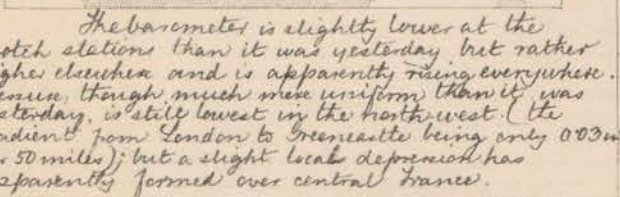 The barometer is slightly lower at the
otch stations than it was yesterday but rather
igher elsewhere and is apparently rising everywhere.
essure, though much more uniform than it was
sterday, is still lowest in the north-west. (the
adient from London to Greencastle being only 0.03 in
r 50 miles); but a slight local depression has
apparently formed over central France.